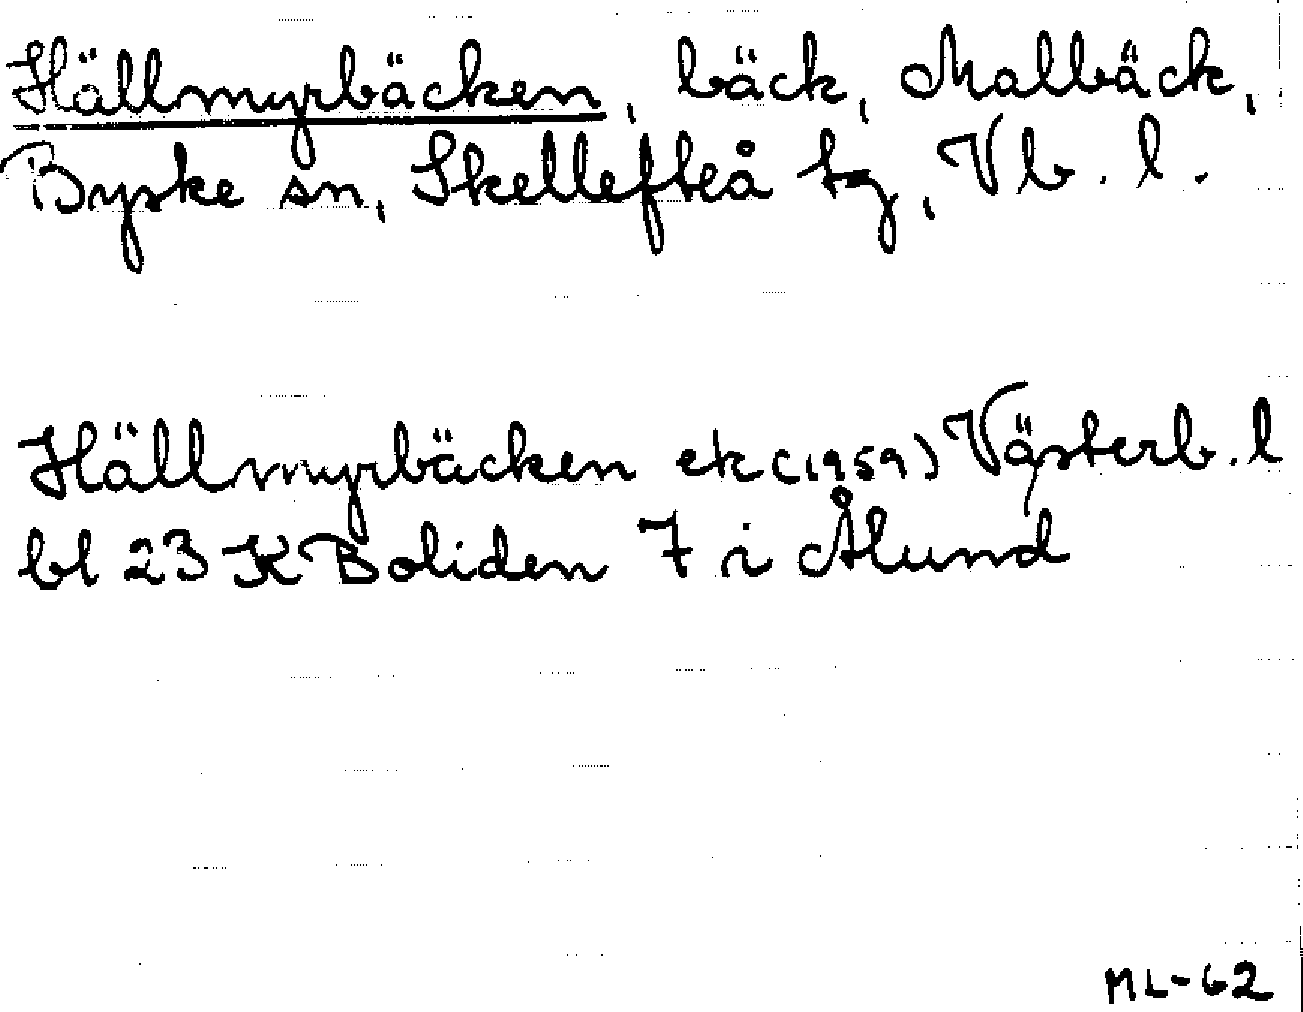 Hällmyrbäcken, bäck, Malbäck,
Byske sn, Skellefteå tg, Vb. l.
Hällmyrbäcken ek (1959) Västerb. l
bl 23 K Boliden 7 i Ålund
ML-62